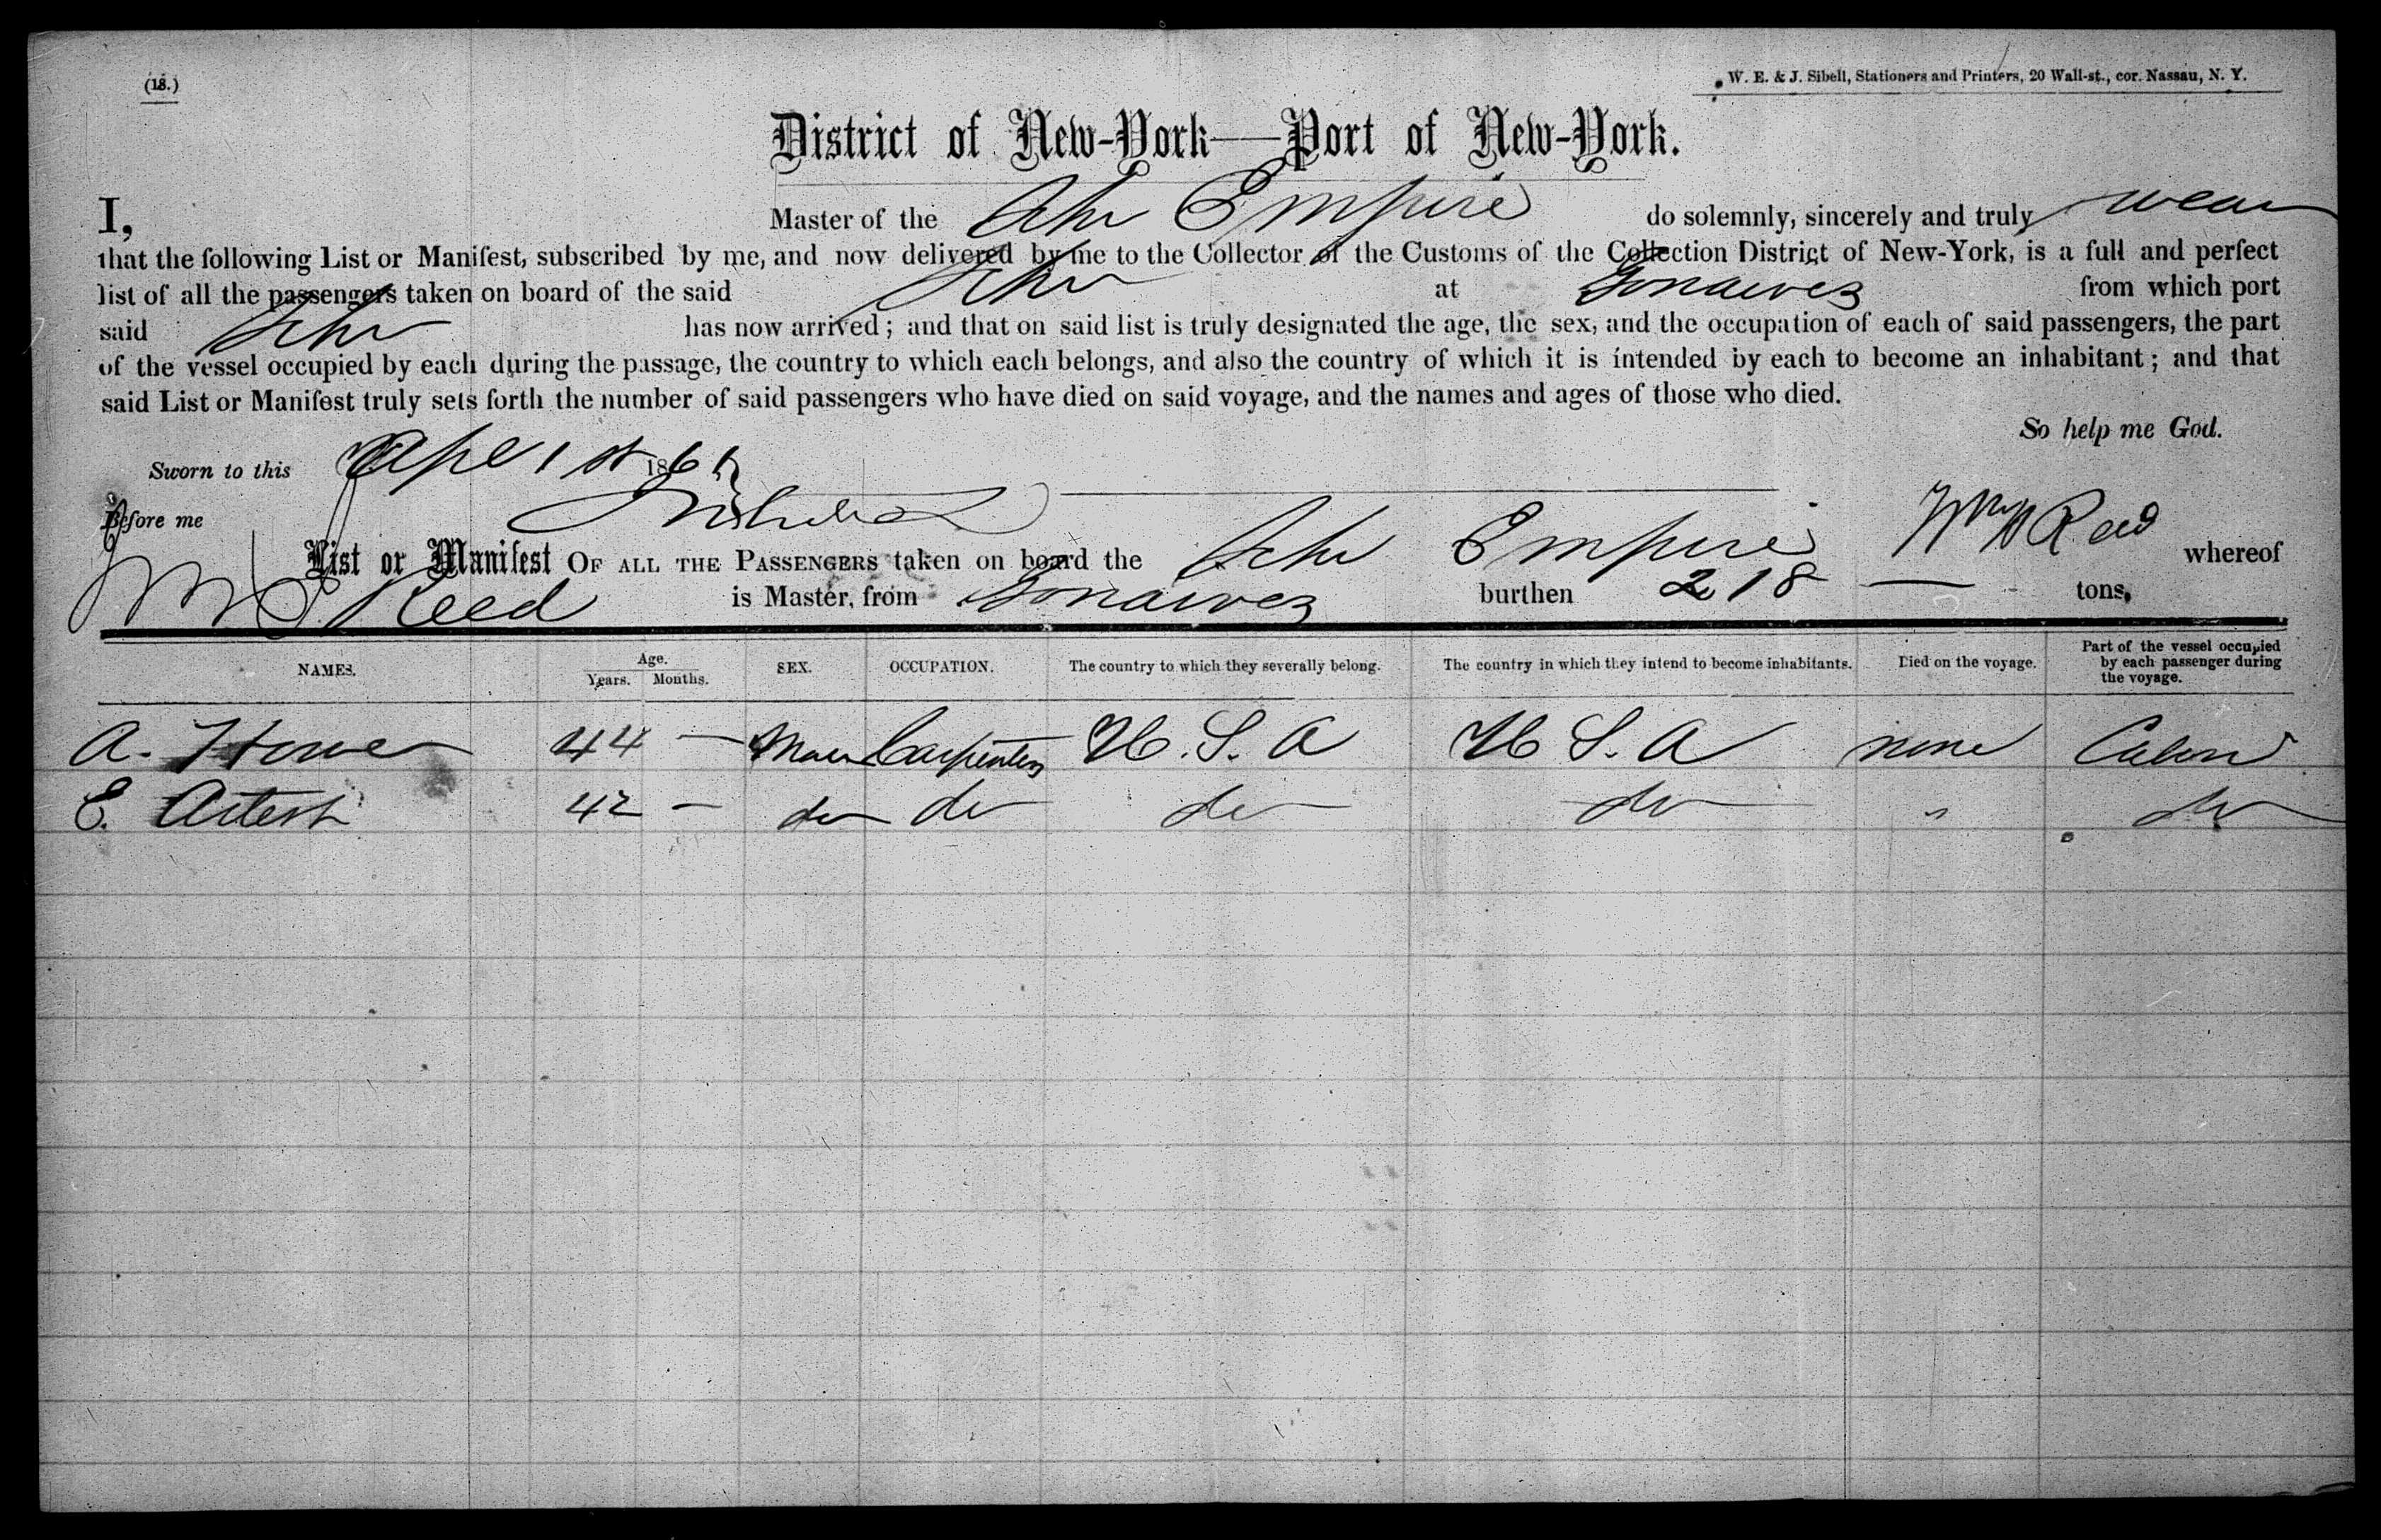 (18.)
W. E. & J. Sibell, Stationers and Printers, 20 Wall-st., cor. Nassau, N. Y.
District of New-York—Port of New-York.
I, Master of the Schr Empire do solemnly, sincerely and truly swear
that the following List or Manifest, subscribed by me, and now delivered by me to the Collector of the Customs of the Collection District of New-York, is a full and perfect
list of all the passengers taken on board of the said Schr at Gonaives from which port
said Schr has now arrived; and that on said list is truly designated the age, the sex, and the occupation of each of said passengers, the part
of the vessel occupied by each during the passage, the country to which each belongs, and also the country of which it is intended by each to become an inhabitant; and that
said List or Manifest truly sets forth the number of said passengers who have died on said voyage, and the names and ages of those who died.
So help me God.
Sworn to this Apl 1st 186
Before me
List or Manifest OF ALL THE PASSENGERS taken on board the Schr Empire Wm Reed whereof
is Master, from Gonaives burthen 218 — tons.
Reed
NAMES. Age. Years. Months. SEX. OCCUPATION. The country to which they severally belong. The country in which they intend to become inhabitants. Died on the voyage. Part of the vessel occupied by each passenger during the voyage.
A. Howe 44 — Male Carpenter U. S. A U S. A none Cabin
E. 42 — do do do do " do